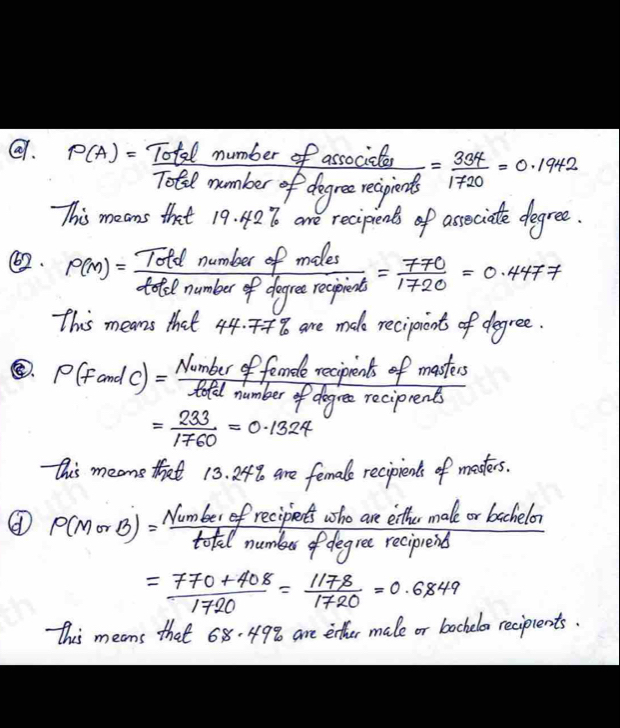 ⓐ. P(A) = Total number of associates / Total number of degree recipients = 334/1720 = 0.1942
This means that 19.42% are recipients of associate degree.
ⓑ. P(M) = Total number of males / total number of degree recipients = 770/1720 = 0.4477
This means that 44.77% are male recipients of degree.
ⓒ. P(F and C) = Number of female recipients of masters / total number of degree recipients
= 233/1760 = 0.1324
This means that 13.24% are female recipients of masters.
ⓓ P(M or B) = Number of recipients who are either male or bachelor / total number of degree recipients
= 770+408/1720 = 1178/1720 = 0.6849
This means that 68.49% are either male or bachelor recipients.